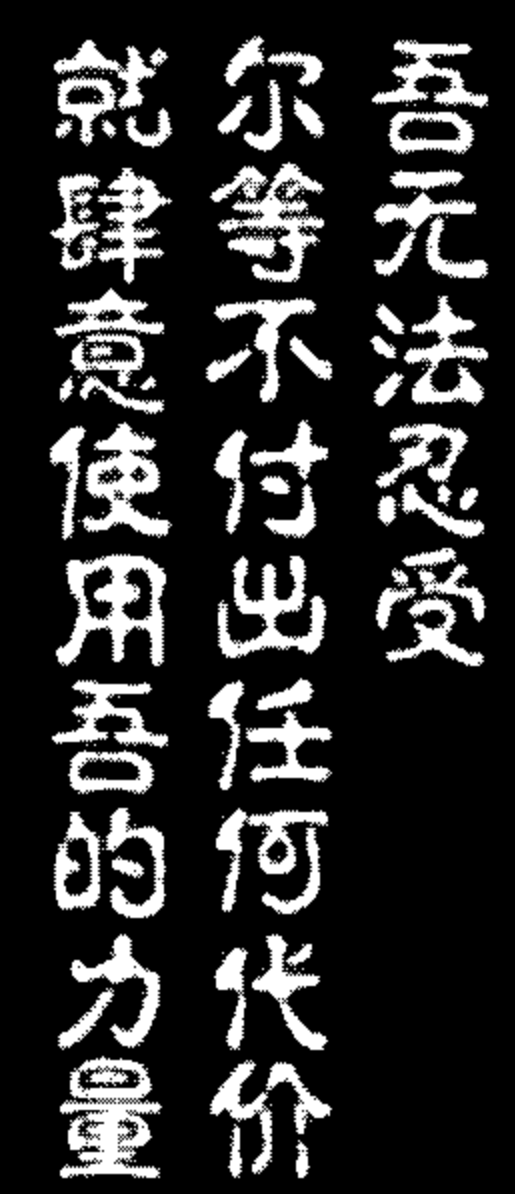 吾无法忍受
尔等不付出任何代价
就肆意使用吾的力量